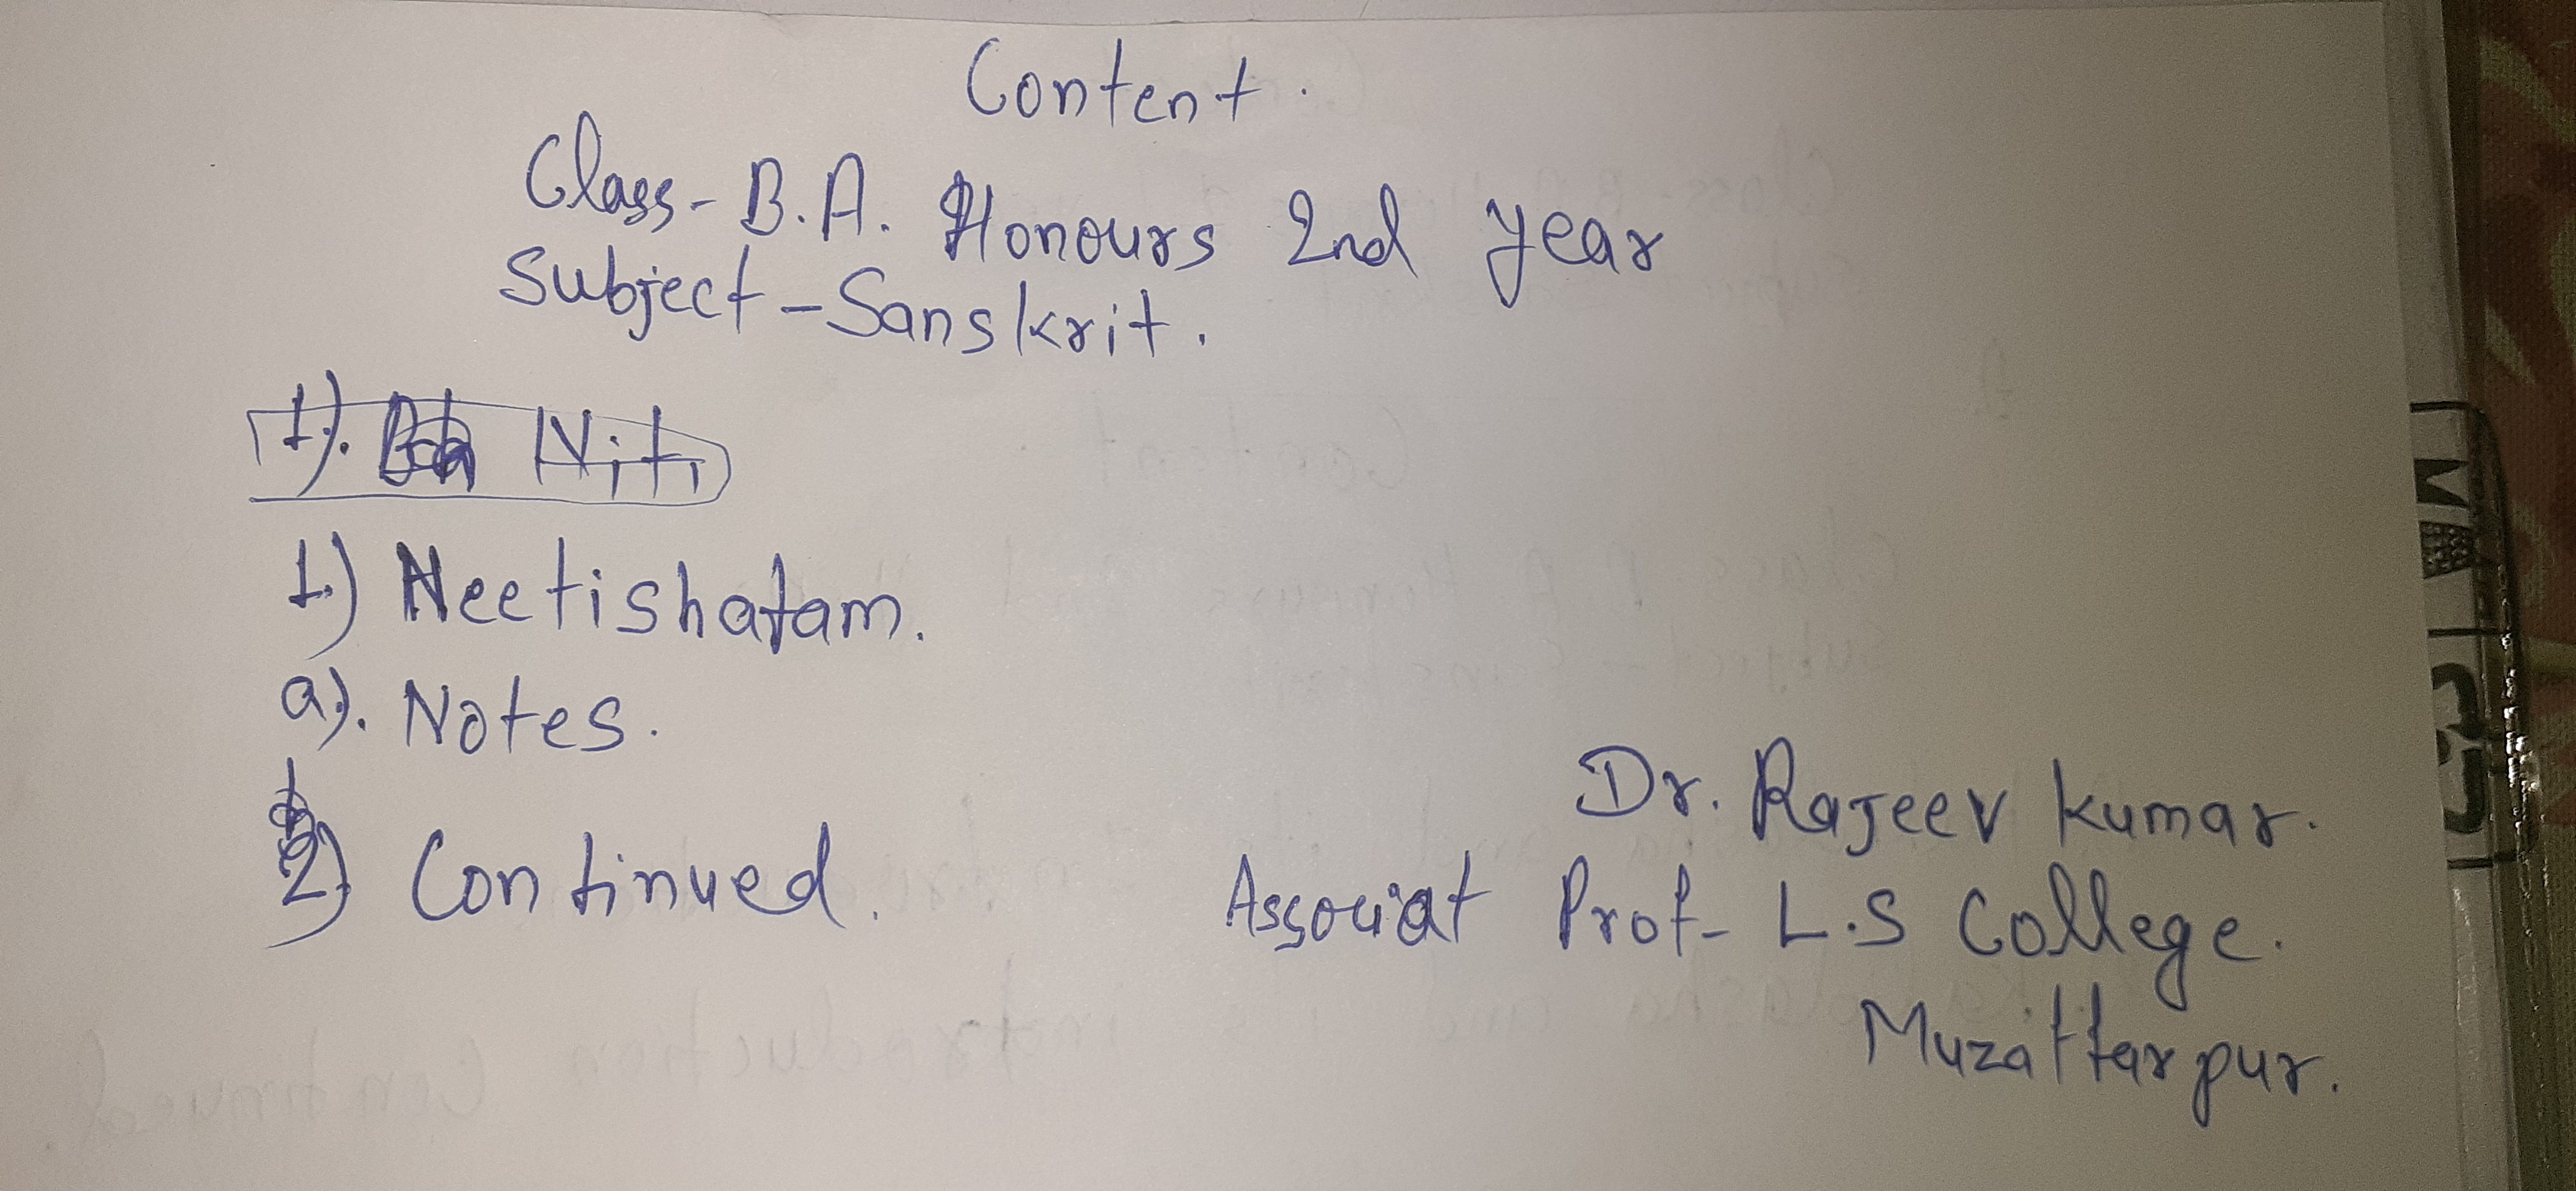 Content.
Class - B.A. Honours 2nd year
Subject - Sanskrit.
1). Niti
1.) Neetishatam.
a). Notes.
2) Continued.
Dr. Rajeev kumar.
Associat Prof - L.S College.
Muzaffarpur.